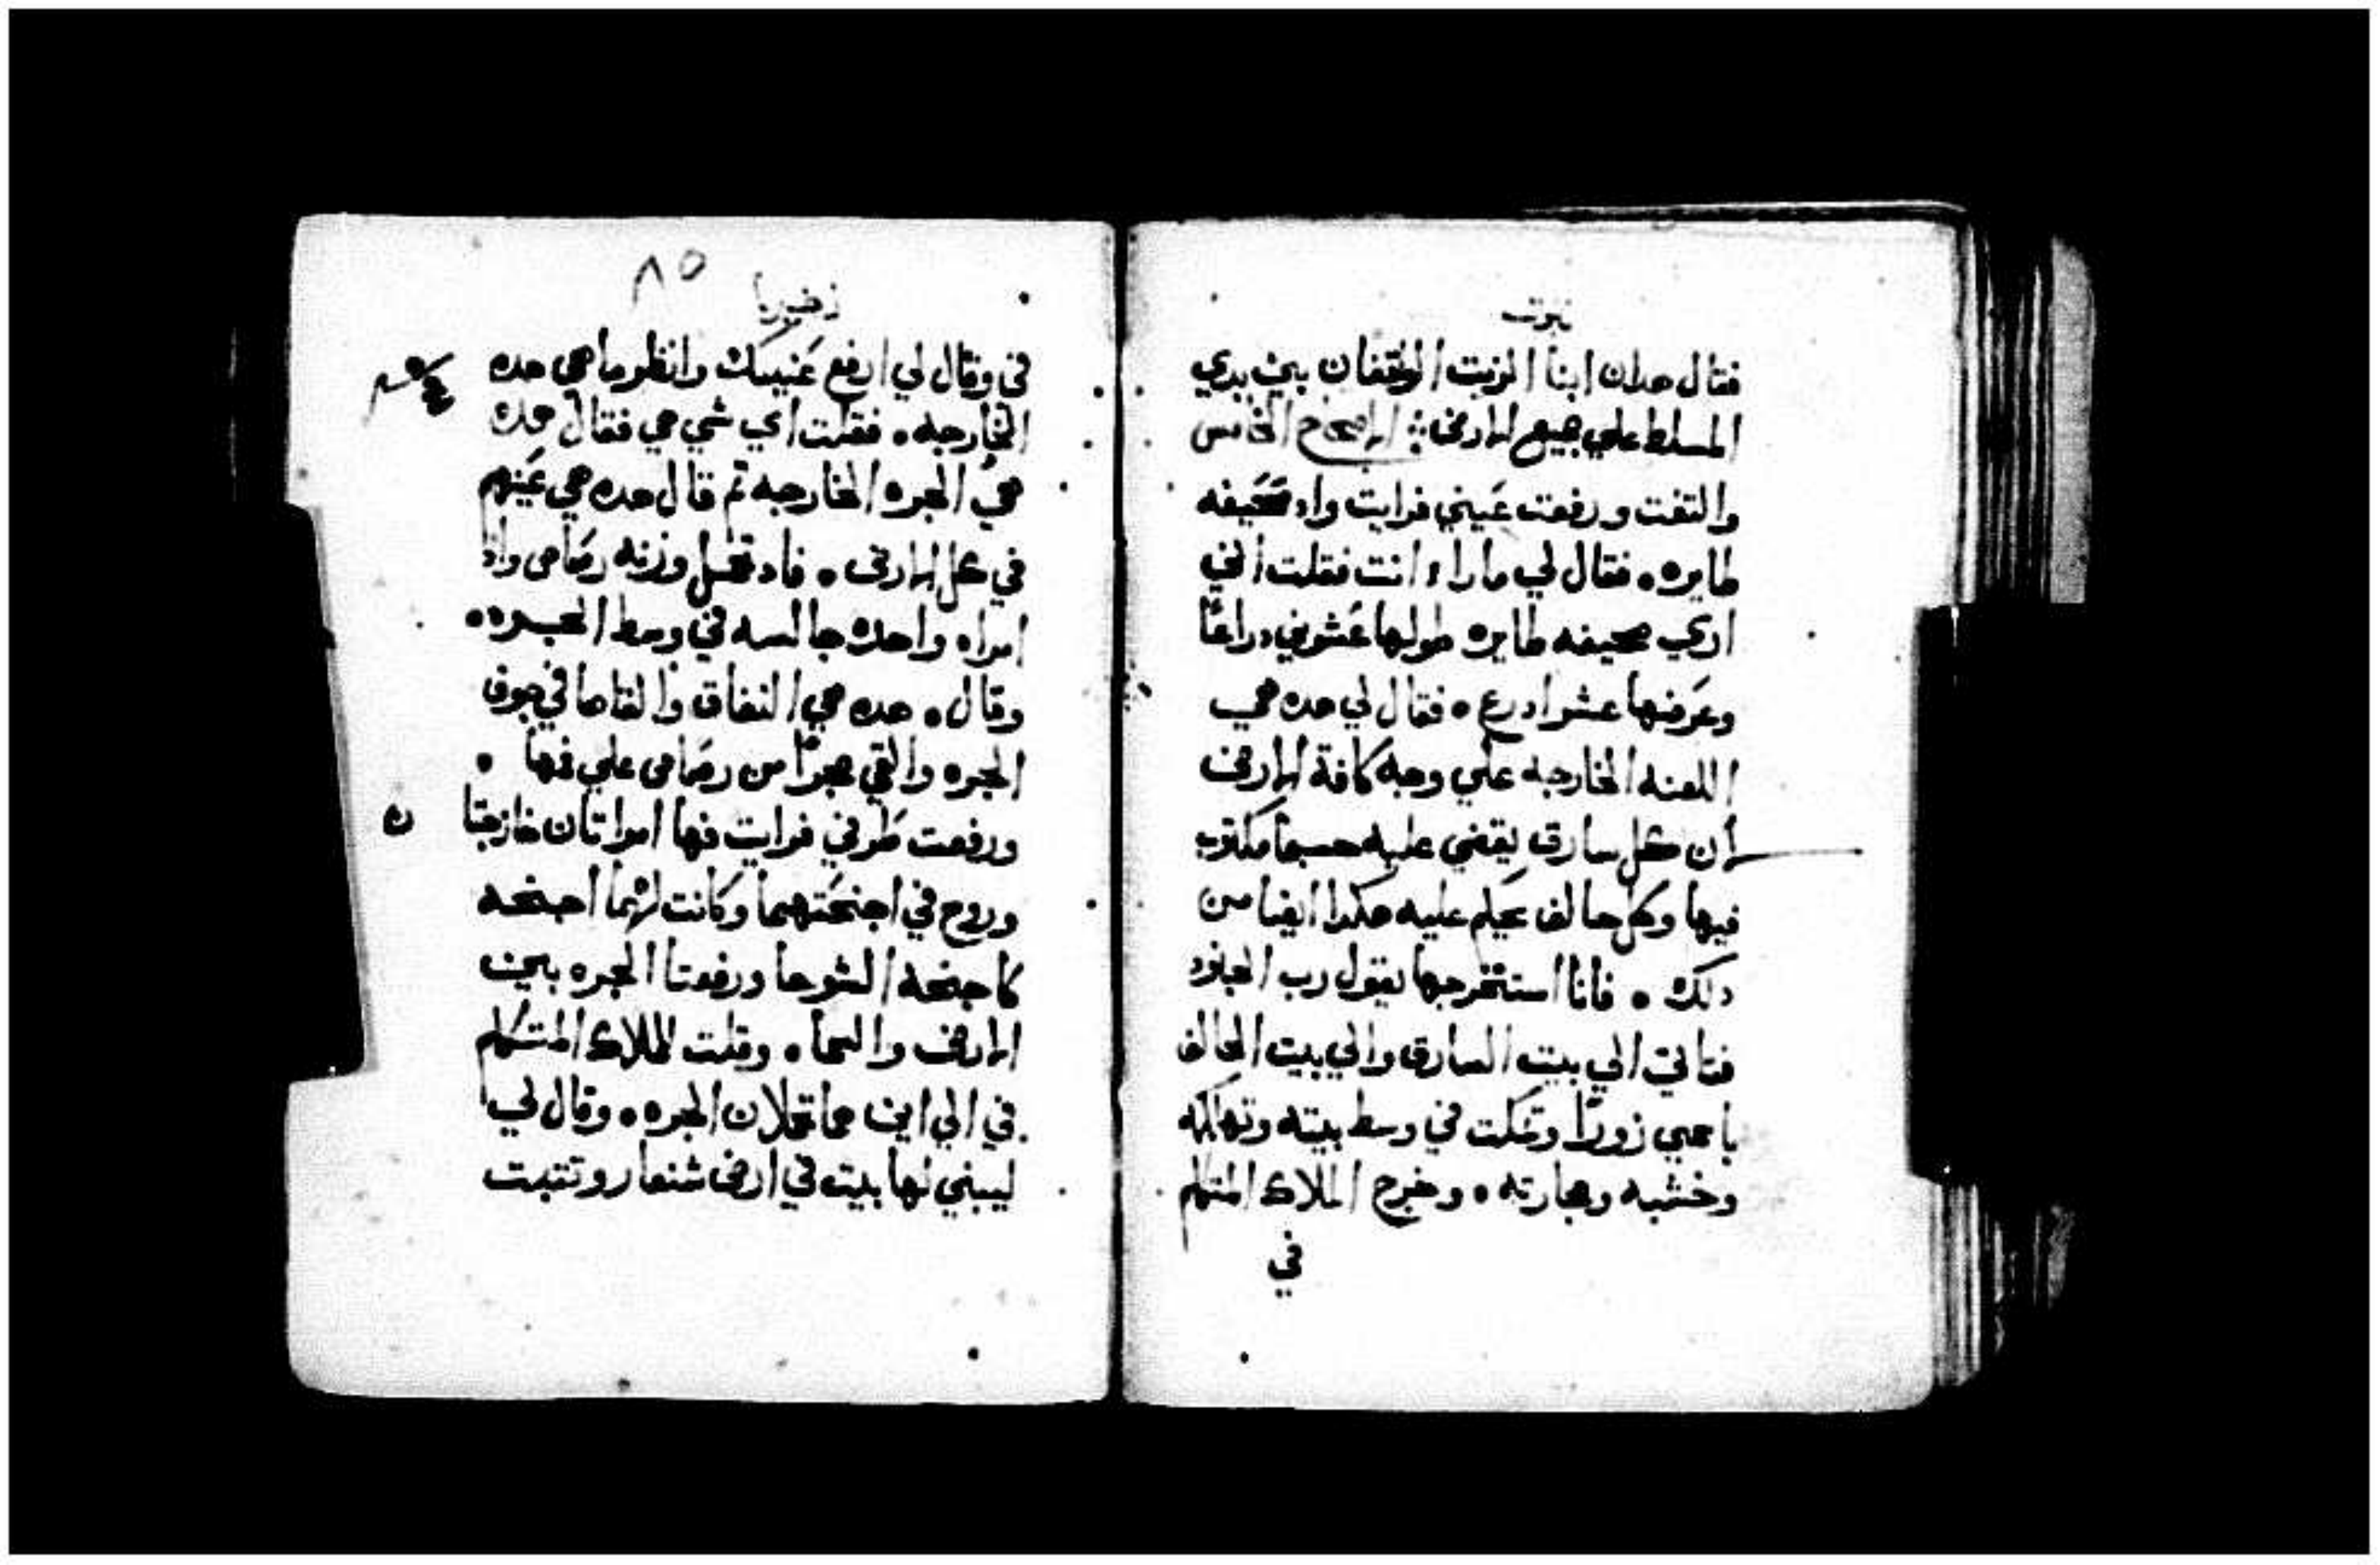 نبوت
فقال هدان ابنا الزيت الواقفان بين يدي
المسلط علي جميع الارض الاصحاح الخامس
والتفت ورفعت عيني فرايت واد صحيفه
طايره. فقال لي ماراء انت فقلت اني
اري صحيفه طايره طولها عشرين دراعا
وعرضها عشر ادرع. فقال لي هده هي
اللعنه الخارجه علي وجه كافة الارض
أن كل سارق يقضي عليه حسبما مكتوب
فيها وكل حالف يحكم عليه هكدا ايضا من
دلك. فانا استخرجها يقول رب الجنود
فتاتي الي بيت السارق والي بيت الحالف
باسمي زورا وتمكت في وسط بيته وتهلكه
وخشبه وحجارته. وخرج الملاك المتكلم
في
٨٥
زخريا
في وقال لي ارفع عينيك وانظر ما هي هده
الخارجه. فقلت اي شي هي فقال هده
هي الجره الخارجه تم قال هده هي عينهم
في كل الارض. فاد تحمل وزنه رصاص واد
امراه واحده جالسه في وسط الجره.
وقال. هده هي النفاق والقاها في جوف
الجره والقي حجرا من رصاص علي فمها.
ورفعت طرفي فرايت فها امراتان خارجتا
ن
وروح في اجنحتهما وكانت لهما اجنحه
كاجنحه الشوحا ورفعتا الجره بين
الارض والسما. وقلت للملاك المتكلم
في الي اين هما تحملان الجره. وقال لي
ليبني لها بيت في ارض شنعار وتتبت